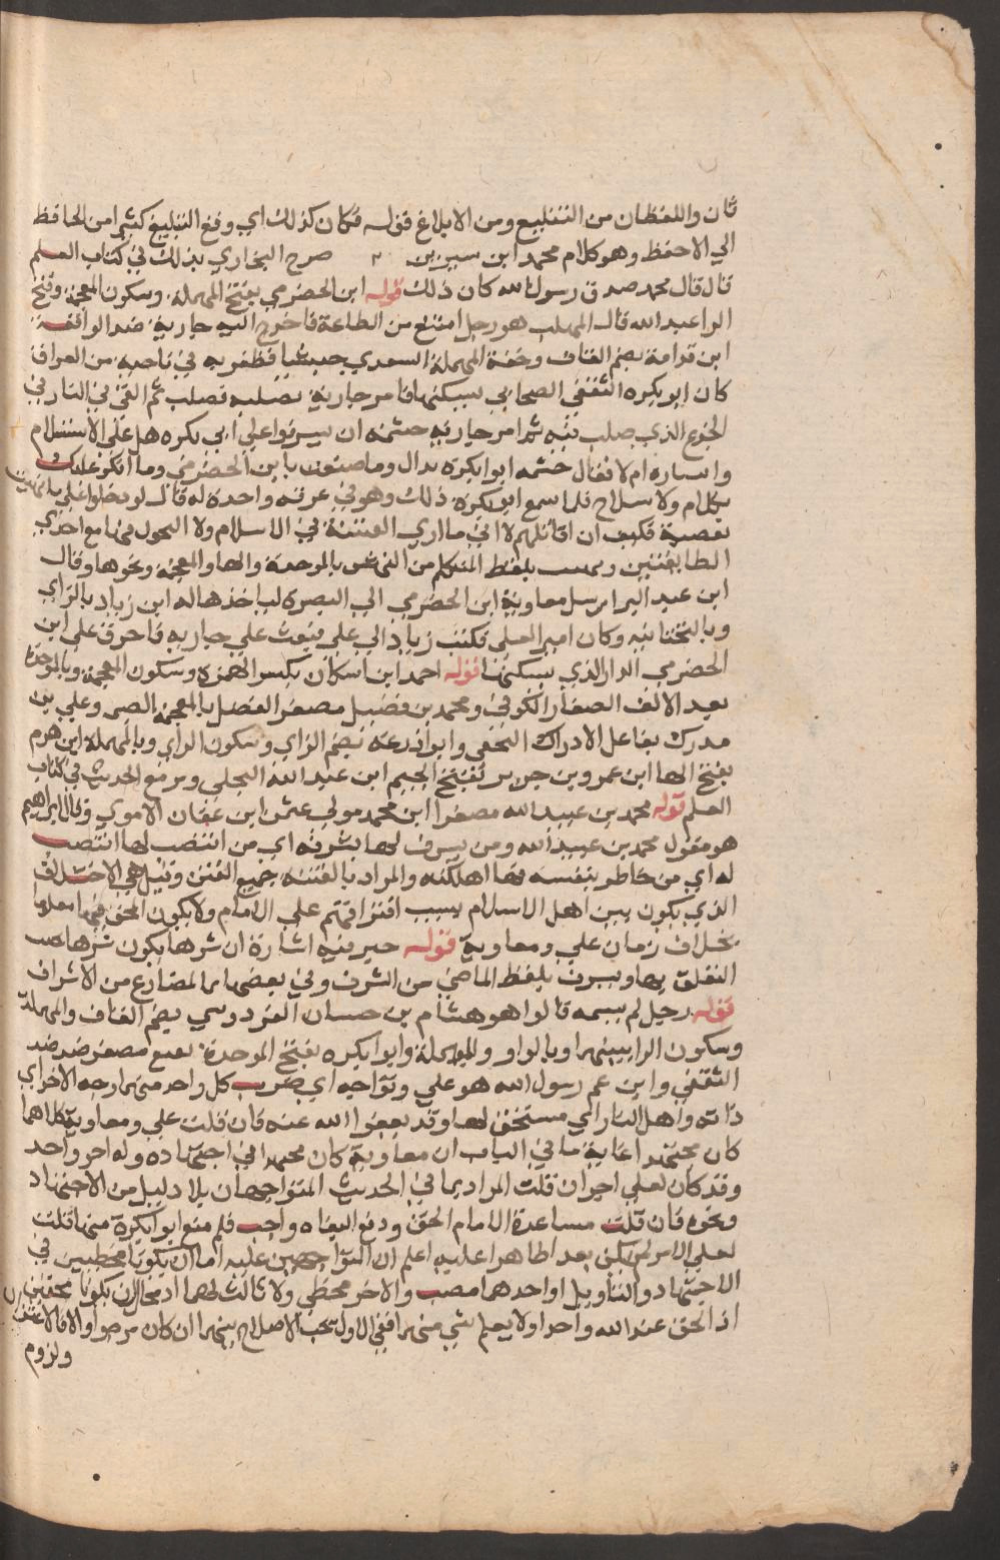 ثان واللفظان من التبليغ ومن الابلاغ قوله فكان كذلك اي وقع التبليغ كثيرا من الحافظ
الي الاحفظ وهو كلام محمد ابن سيرين صرح البخاري بذلك في كتاب العلم
قال قال محمد صدق رسول الله كان ذلك قوله ابن الحضرمي بفتح المهملة وسكون المعجمة وفتح
الرا عبد الله قال المهلب هو رجل امتنع من الطاعة فاخرج اليه جارية ضد الواقفة
ابن قدامة بضم القاف وخفة المهملة السعدي جيشا فظفر به في ناحية من العراق
كان ابو بكره الثقفي الصحابي يسكنها فامر جارية بصلبه فصلب ثم القي في النار في
الجزع الذي صلب فيه ثم امر جارية حشمه ان يسرفوا علي ابي بكره هل علي الاستسلام
وانساره ام لا فقال حشمه ابوا بكرة يراك وما صنعت بابن الحضرمي وما انكر عليك
بكلام ولا سلاح فلما سمع ابو بكرة ذلك وهو في غرفته واحدة له قال لو دخلوا علي ما بهشت
بقصبة فكيف ان اقاتلهم لا اني ما اري الفتنة في الاسلام ولا التحول فيها مع احدي
الطايفتين وبهشت بلفظ المتكلم من البهش بالموحدة والها والمعجمة ونحوها وقال
ابن عبد البر ارسل معاوية ابن الحضرمي الي البصرة لياخذها له ابن زياد بالزاي
وبالتحتانية وكان اميرا لعلي فكتب زياد الي علي فبعث علي جارية فاحرق علي ابن
الحضرمي الدار الذي يسكنها قوله احمد ابن اسكاب بكسر الهمزة وسكون المعجمة وبالموحدة
بعيد الالف الصفار الكوفي ومحمد بن فضيل مصغر الفضل بالمعجمة الضبي وعلي بن
مدرك بفاعل الادراك النخعي وابوا زرعة بضم الزاي وسكون الراي وبالمهملة ابن هرم
بفتح الها ابن عمرو بن جرير بفتح الجيم ابن عبد الله البجلي ومر مع الحديث في كتاب
العلم قوله محمد بن عبيد الله مصغرا ابن محمد مولي عثمن ابن عفان الاموي وقال ابراهيم
هو مقول محمد بن عبيد الله ومن يسرف لها بشرفه اي من انتصب لها انتصبت
له اي من خاطر بنفسه فيها اهلكته والمراد بالفتنة جميع الفتن وقيل هي الاختلاف
الذي يكون بين اهل الاسلام بسبب افتراقهم علي الامام ولا يكون المحق فيها معلوما
بخلاف زمان علي ومعاوية قوله خير فيه اشارة ان شرها يكون شرها بحسب
التعلق بها ويسرف بلفظ الماضي من الشرف وفي بعضها بالمضارع من الاشراف
قوله رجل لم يسمه قالوا هو هشام بن حسان الفردوسي بضم القاف والمهملة
وسكون الرا بينهما وبالواو والمهملة وابوا بكره بفتح الموحدة نفيع مصغر ضد ضد
الثقفي وابن عم رسول الله هو علي وتواجه اي ضرب كل واحد منهما وجه الاخر اي
ذاته واهل النار اي مستحق لها وقد يعفوا الله عنه فان قلت علي ومعاوية كلاهما
كان مجتهدا غاية ما في الباب ان معاوية كان مخطيا في اجتهاده وله اجر واحد
وقد كان لعلي اجران قلت المراد بما في الحديث المتواجهان بلا دليل من الاجتهاد
ونحوه فان قلت مساعدة الامام الحق ودفع البغاه واجب فلم منع ابوا بكرة منها قلت
لعل الامر لم يكن بعد ظاهرا عليه اعلم ان المتواجهين عليه اما ان يكونا مخطيين في
الاجتهاد والتاويل او احدهما مصيب والاخر مخطي ولا ثالث لهما اذ محال ان يكونا محقين
اذ الحق عند الله واحد او لا يعلم شي منهما ففي الاول يجب الاصلاح بينهما ان كان مرجوا والا فالاعتزال
ولزوم